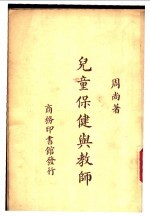 周尚著
兒童保健與教師
商務印書館發行